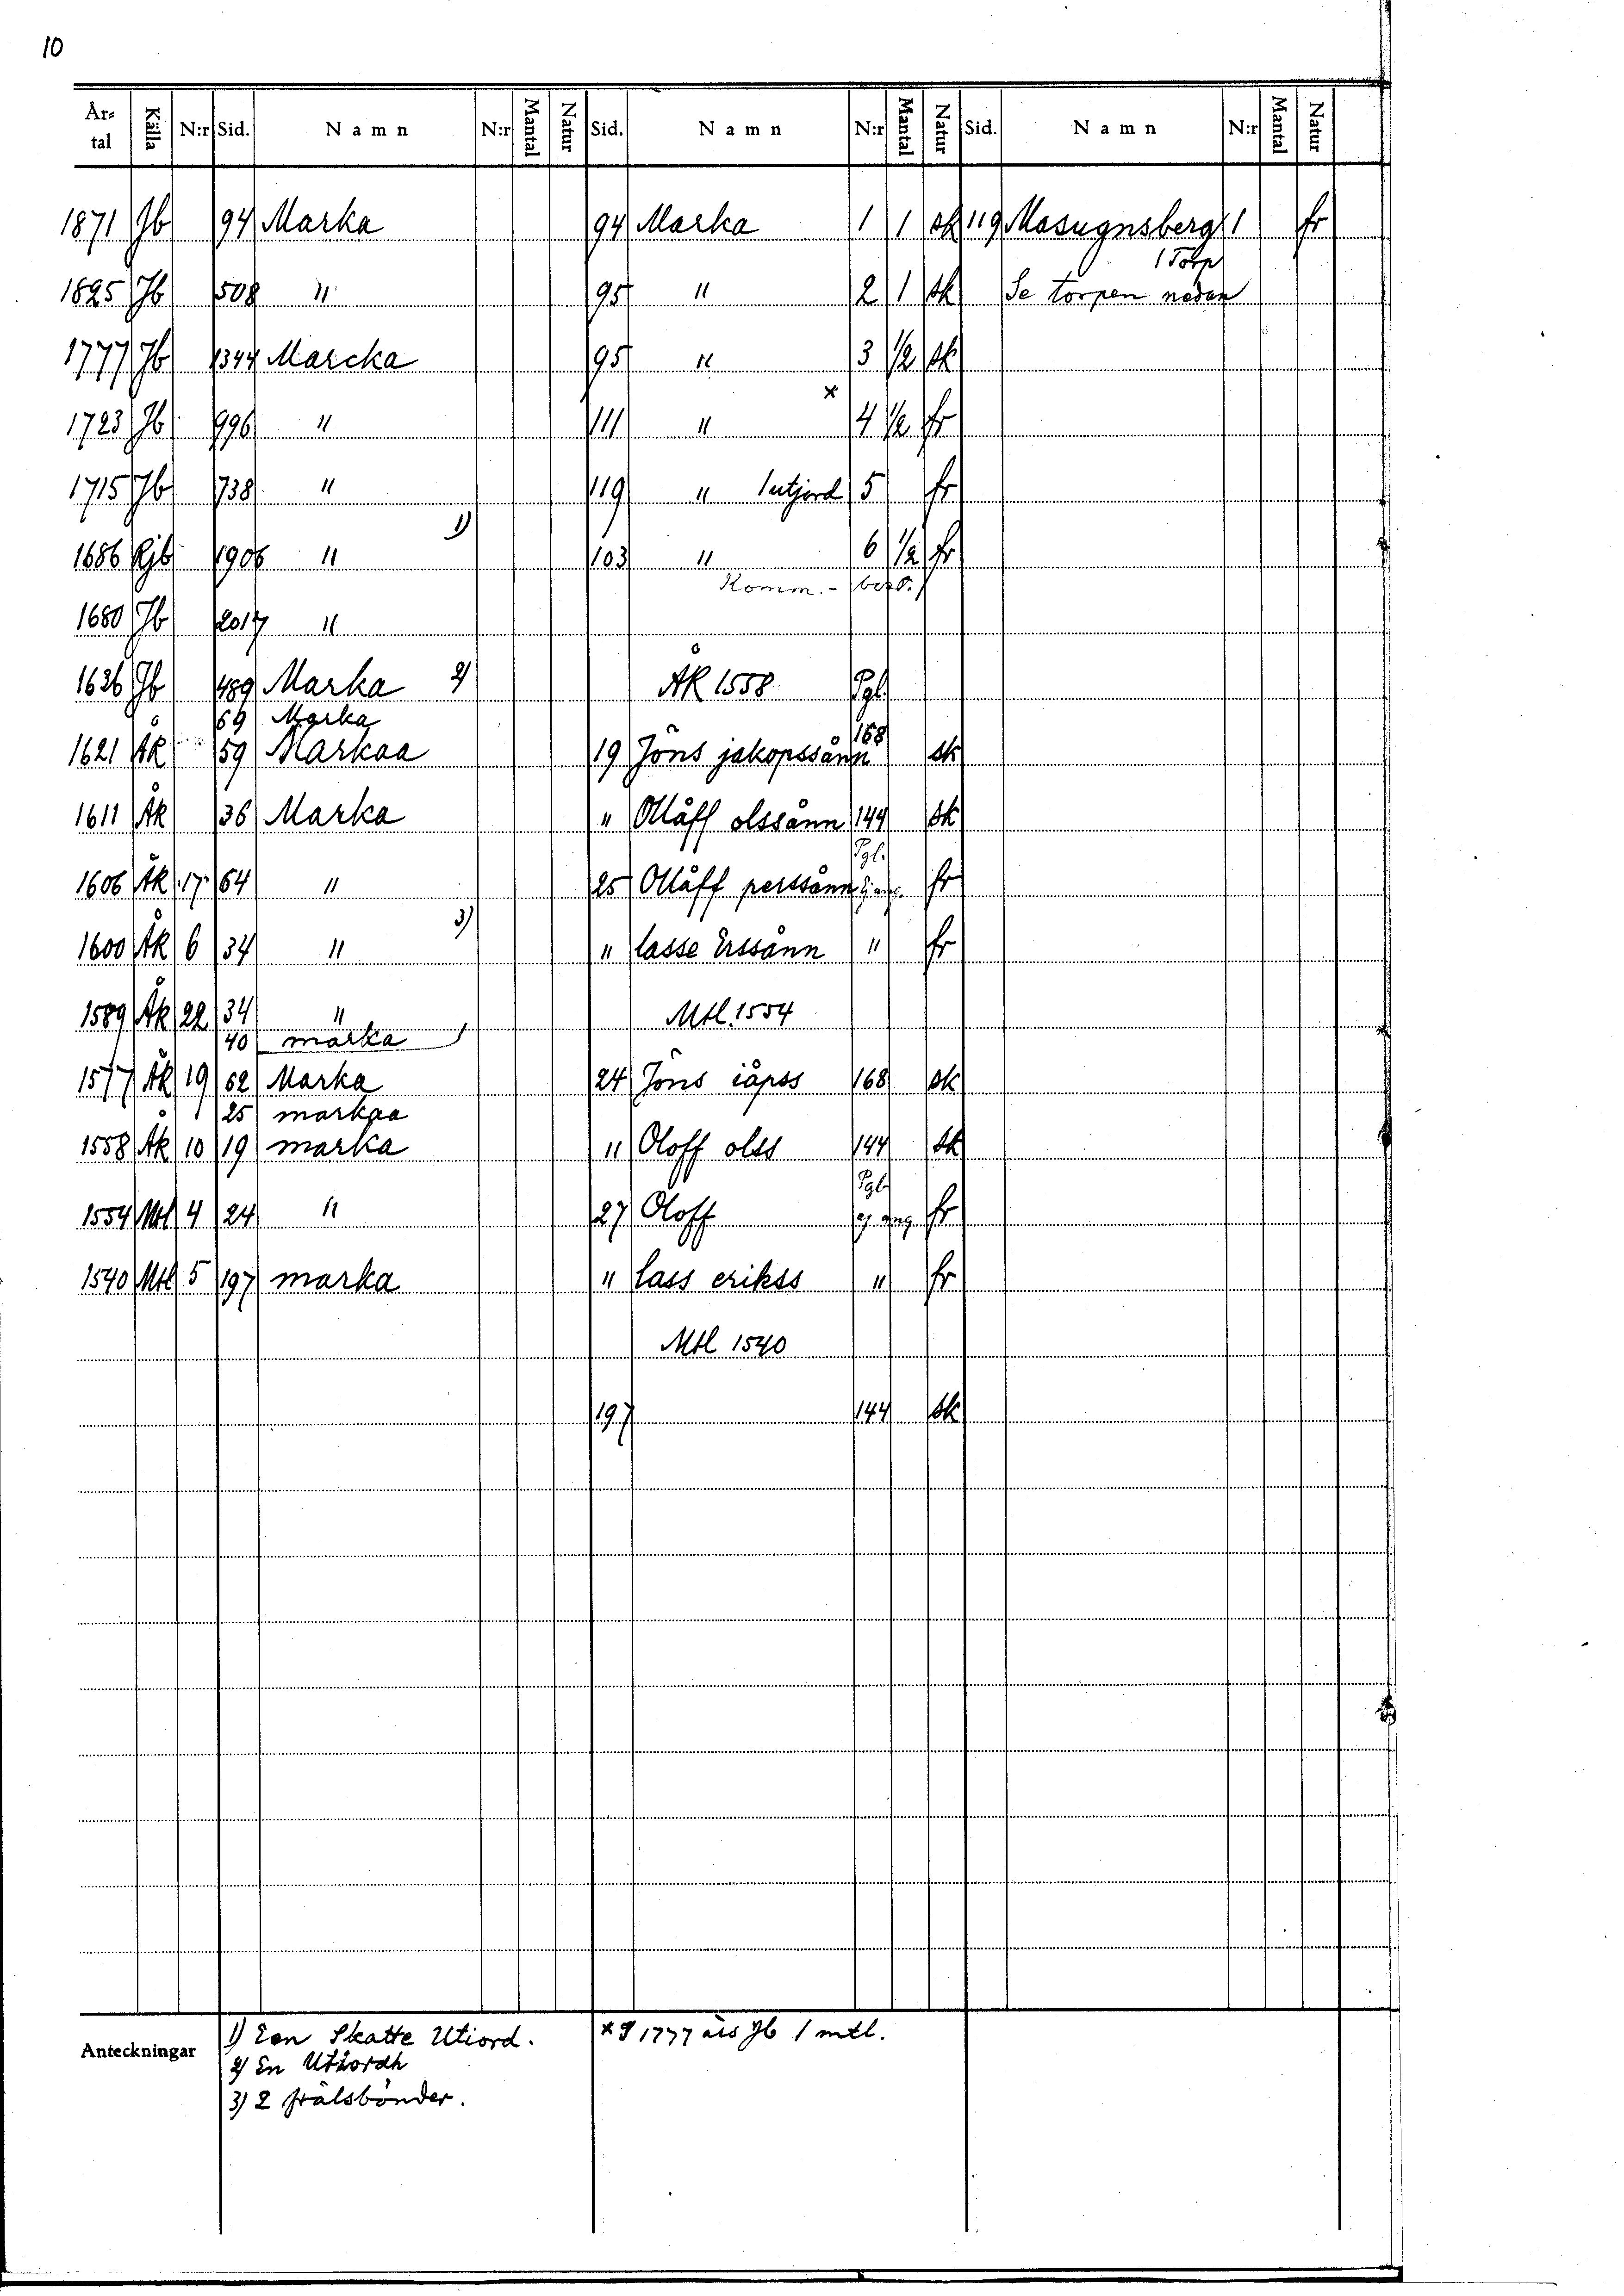 10
År-tal Källa N:r Sid. Namn N:r Mantal Natur Sid. Namn N:r Mantal Natur Sid. Namn N:r Mantal Natur
1871 Jb 94 Marka 94 Marka 1 1 sk 119 Masugnsberg 1 fr
1 Torp
1825 Jb 508 " 95 " 2 1 sk Se torpen nedan
1777 Jb 1344 Marcka 95 " 3 1/2 sk
x
1723 Jb 996 " 111 " 4 1/2 fr
1715 Jb 738 " 119 " 1 utjord 5 fr
1686 Rjb 1906 " 1) 103 " 6 1/2 fr
Komm.-
1680 Jb 2017 "
1636 Jb 489 Marka 2) ÅK 1558 Pgl.
69 Marka
1621 ÅK 59 Markaa 19 Jöns jakopssånn 168 sk
1611 ÅK 36 Marka " Ollåff olssånn 144 sk
Pgl.
1606 ÅK 17 64 " 25 Ollåff perssånn ej ang. fr
1600 ÅK 6 34 " 3) " lasse Erssånn " fr
1589 ÅK 22 34 " Mtl. 1554
40 marka
1577 ÅK 19 62 Marka 24 Jöns iåpss 168 sk
1 25 markaa
1558 ÅK 10 19 marka " Oloff olss 144 sk
Pgl.
1554 Mtl 4 24 " 27 Oloff ej ang fr
1540 Mtl 5 197 marka " lass erikss " fr
Mtl 1540
197 144 sk
Anteckningar
1) Een Skatte Utiord.
2) En Utiordh
3) 2 frälsbönder.
x I 1777 års Jb 1 mtl.